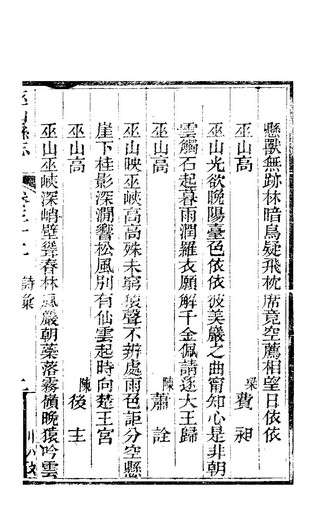 懸獸無跡林暗鳥疑飛枕席竟空薦相望日依依
巫山高 梁 費昶
巫山光欲晚陽臺色依依彼美巖之曲甯知心是非朝
雲觸石起暮雨潤羅衣願解千金佩請逐大王歸
巫山高 陳 蕭詮
巫山映巫峽高高殊未窮猿聲不辨處雨色詎分空懸
崖下桂影深澗響松風別有仙雲起時向楚王宮
巫山高 陳 後主
巫山巫峽深峭壁聳春林風巖朝蘂落霧嶺晚猿吟雲
巫山縣志 詩彙